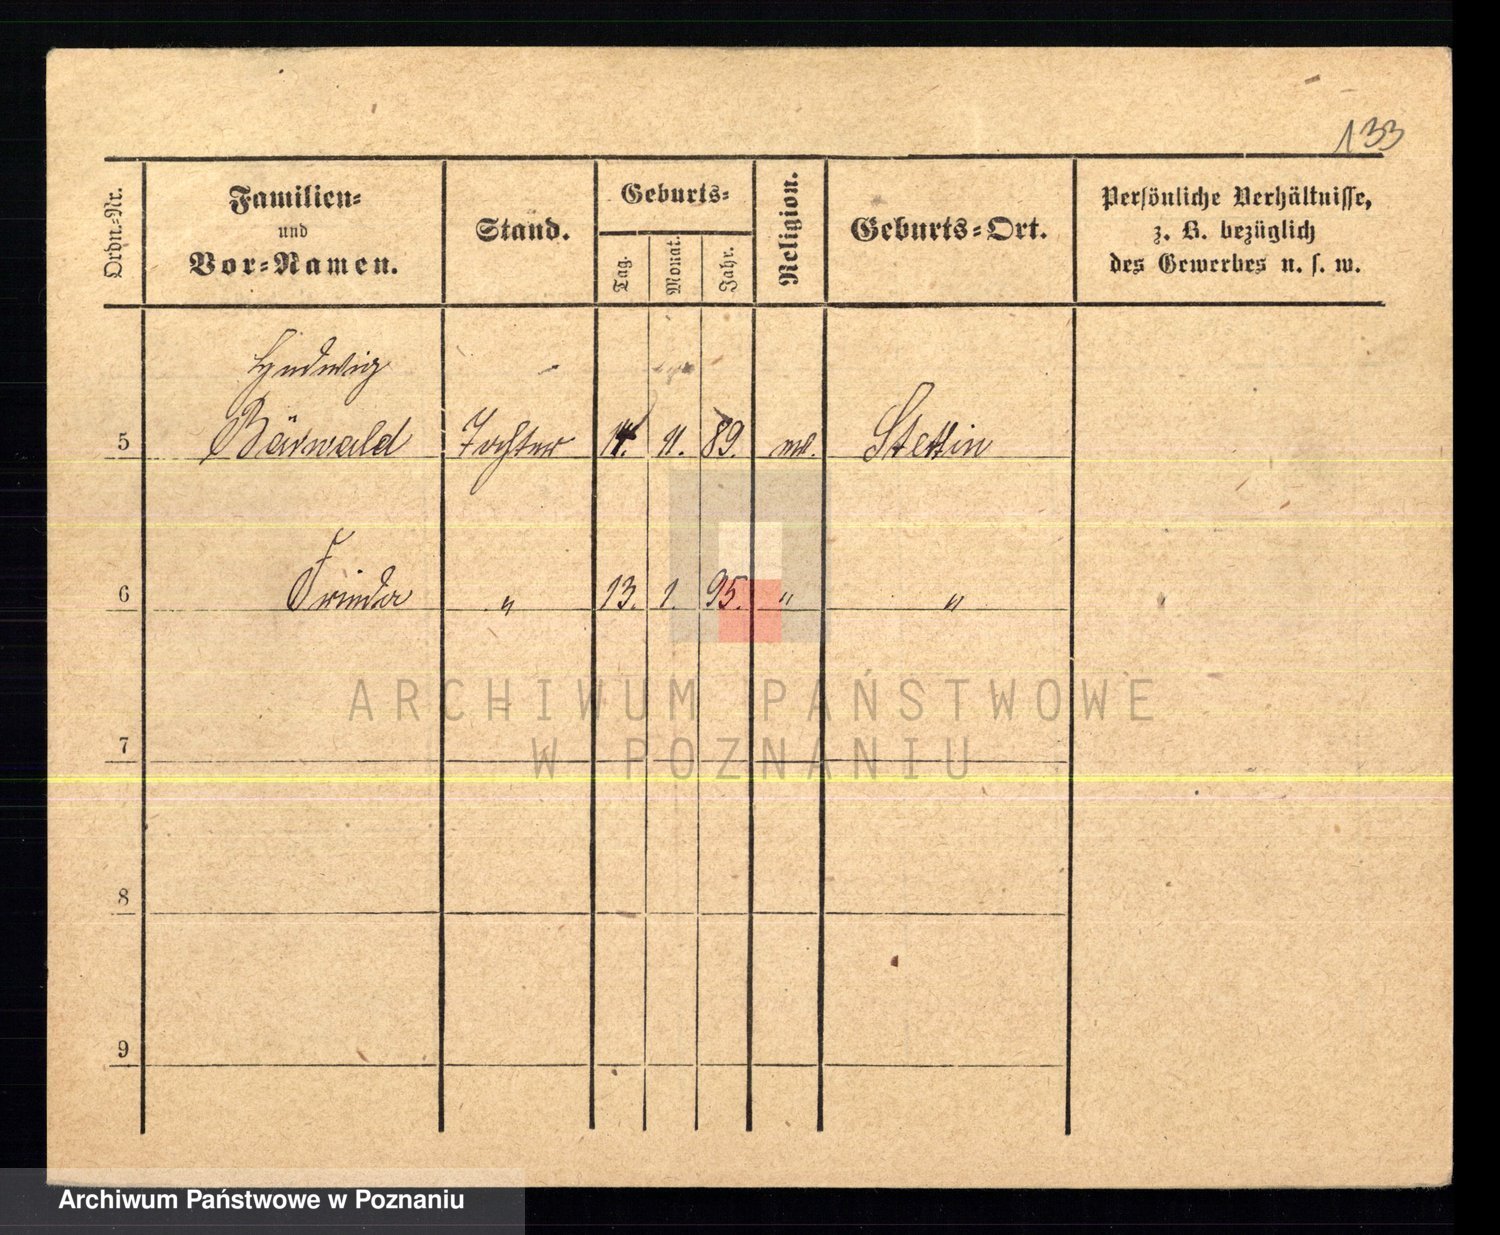 133
Ordn.-Nr.
Familien-
und
Vor-Namen.
Stand.
Geburts-
Tag.
Monat.
Jahr.
Religion.
Geburts-Ort.
Persönliche Verhältnisse,
z. B. bezüglich
des Gewerbes u. s. w.
Hedwig
5 Bärwald Tochter 14. 11. 89. Stettin
6 Frieda " 13. 1. 95. " "
7
8
9
ARCHIWUM PAŃSTWOWE
W POZNANIU
Archiwum Państwowe w Poznaniu